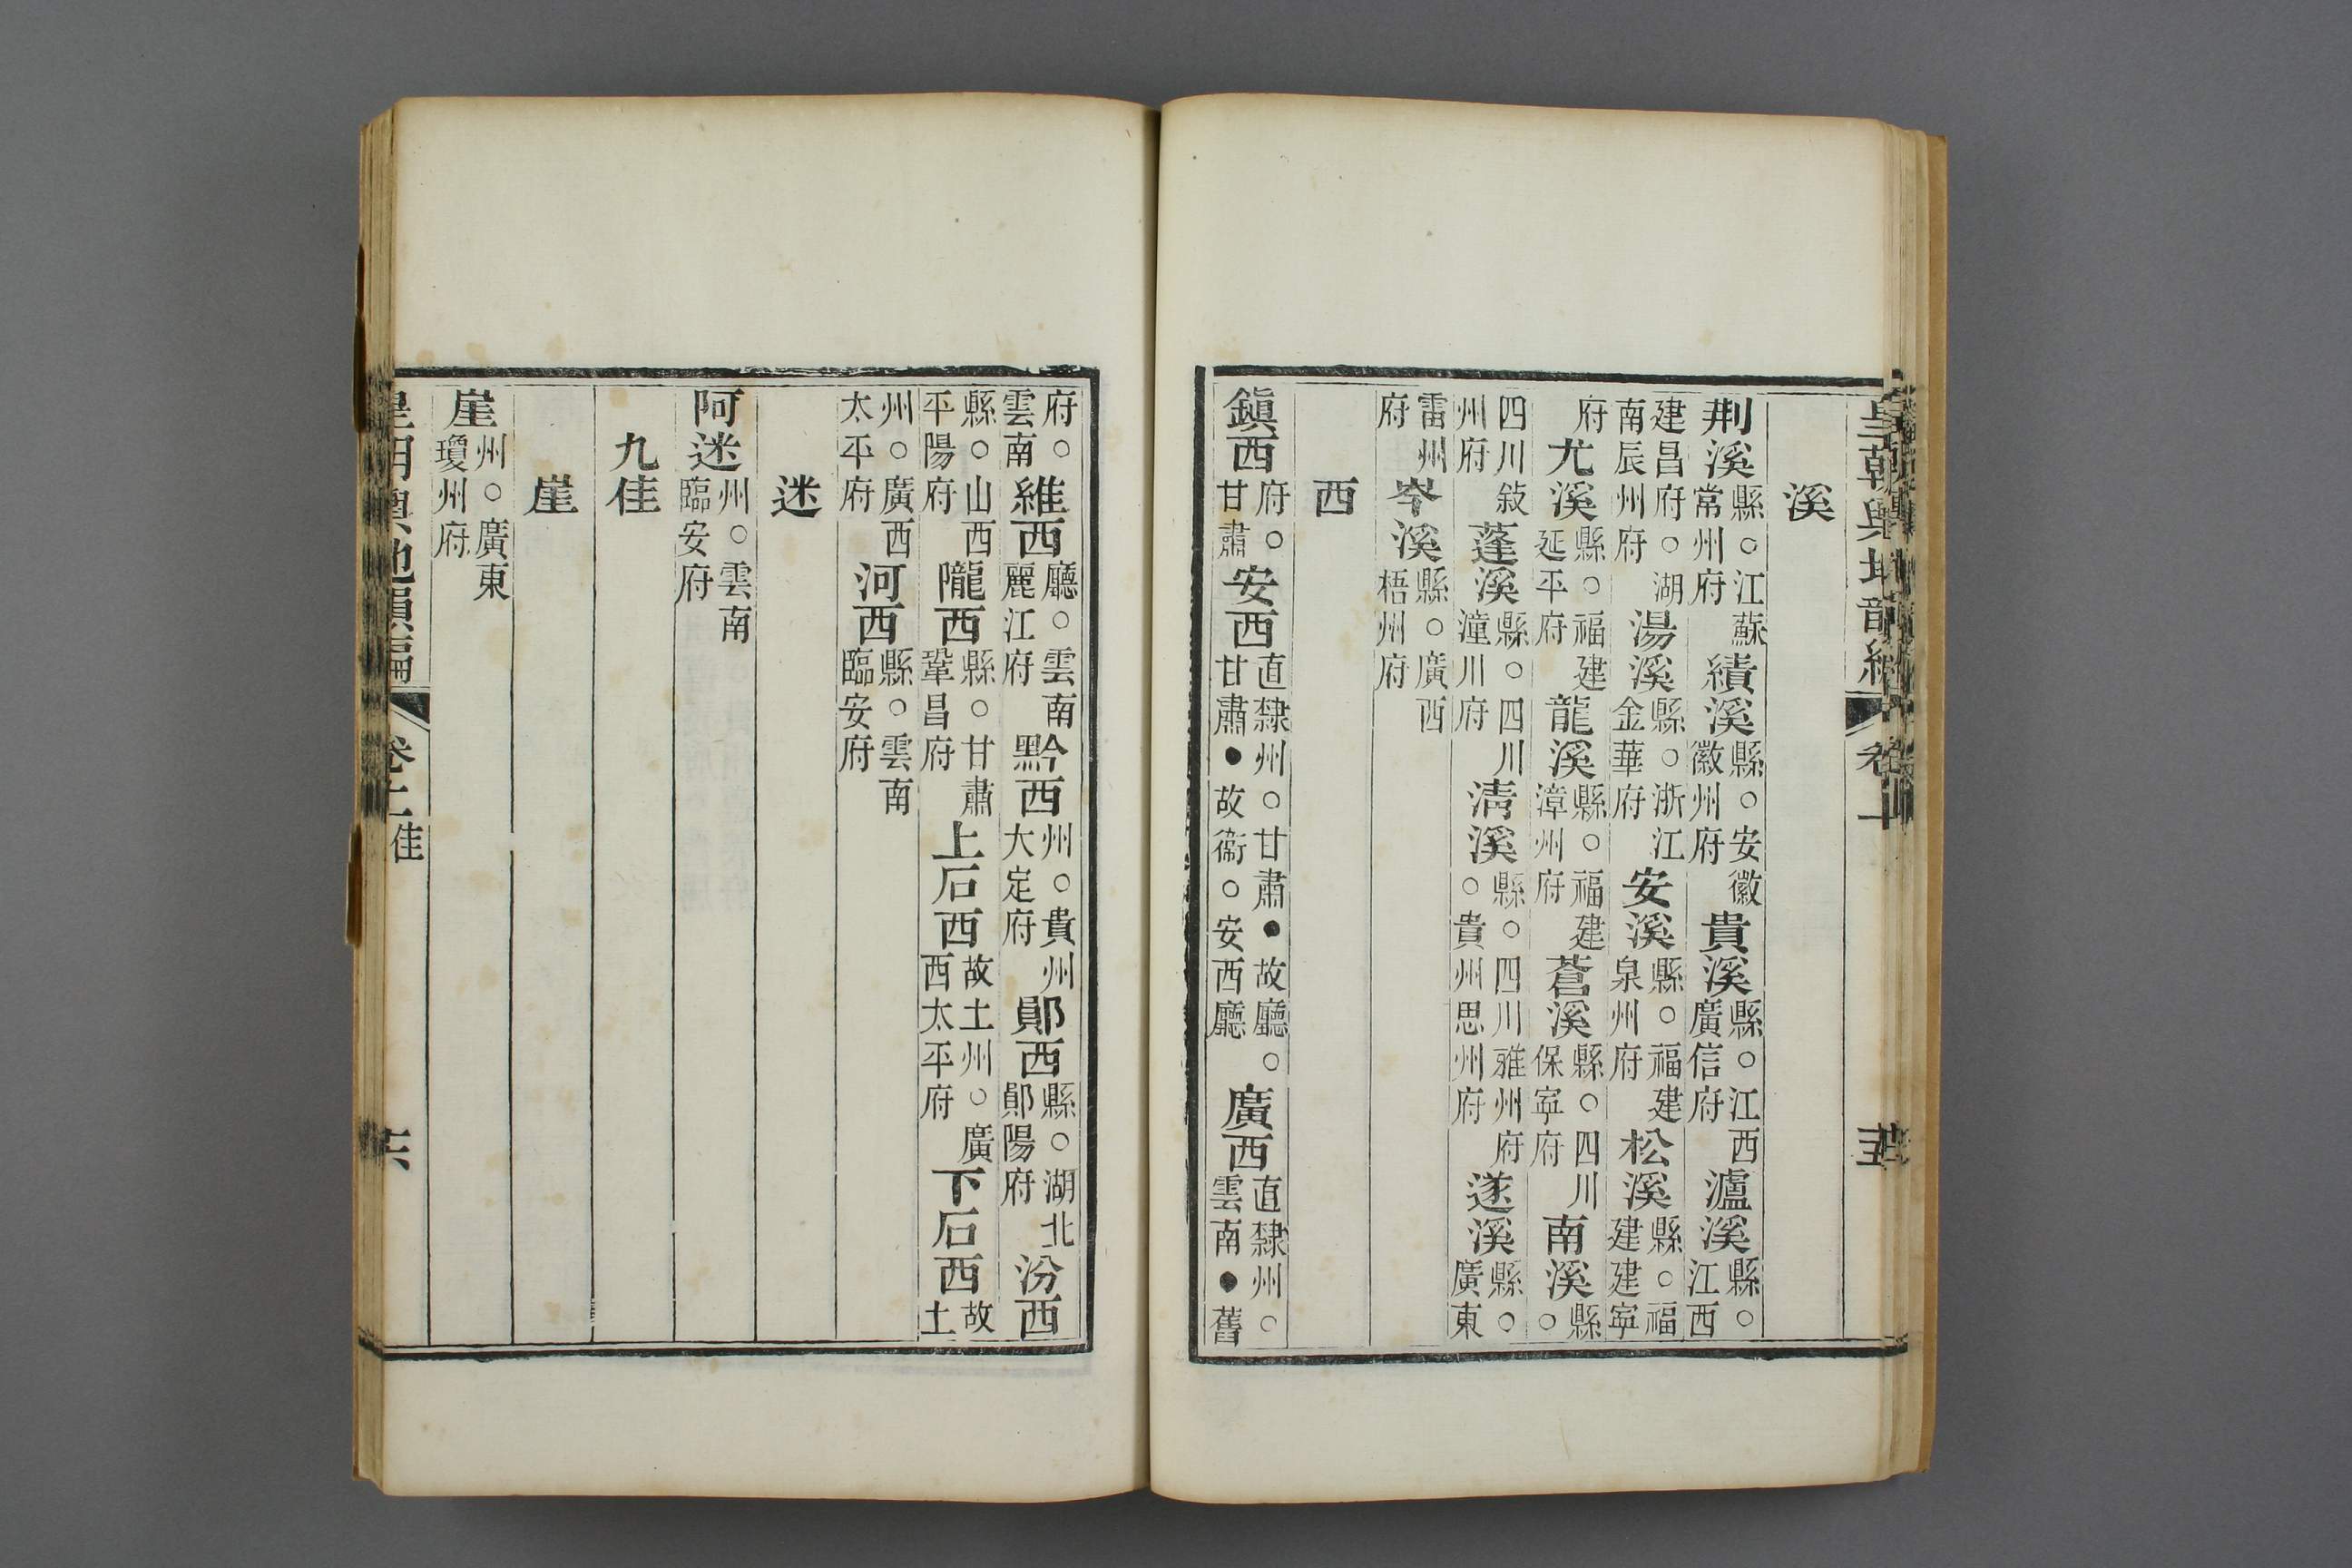 皇朝輿地韻編
溪
荆溪縣。江蘇常州府績溪縣。安徽徽州府貴溪縣。江西廣信府瀘溪縣。江西
建昌府。湖南辰州府湯溪縣。浙江金華府安溪縣。福建泉州府松溪縣。福建建寧
府尤溪縣。福建延平府龍溪縣。福建漳州府蒼溪縣。四川保寧府南溪縣。。
四川敍州府蓬溪縣。四川潼川府淸溪縣。四川雅州府。貴州思州府遂溪縣。。廣東
雷州府岑溪縣。廣西梧州府
西
鎭西府。甘肅安西直隸州。甘肅●故廳。甘肅●故衞。安西廳廣西直隸州。雲南●舊
府。雲南維西廳。雲南麗江府黔西州。貴州大定府鄖西縣。湖北鄖陽府汾西
縣。山西平陽府隴西縣。甘肅鞏昌府上石西故土州。廣西太平府下石西故土
州。廣西太平府河西縣。雲南臨安府
迷
阿迷州。雲南臨安府
九佳
崖
崖州。廣東瓊州府
佳